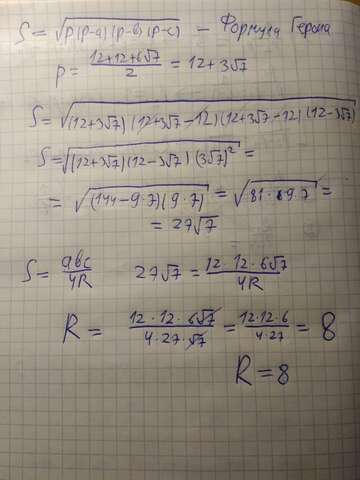 S = √(p(p-a)(p-b)(p-c)) – Формула Герона
p = (12+12+6√7)/2 = 12+3√7
S = √((12+3√7)(12+3√7-12)(12+3√7-12)(12-3√7))
S = √((12+3√7)(12-3√7)(3√7)²) =
= √((144-9·7)(9·7)) = √(81·9·7) =
= 27√7
S = abc/4R 27√7 = (12·12·6√7)/4R
R = (12·12·6√7)/(4·27·√7) = (12·12·6)/(4·27) = 8
R = 8